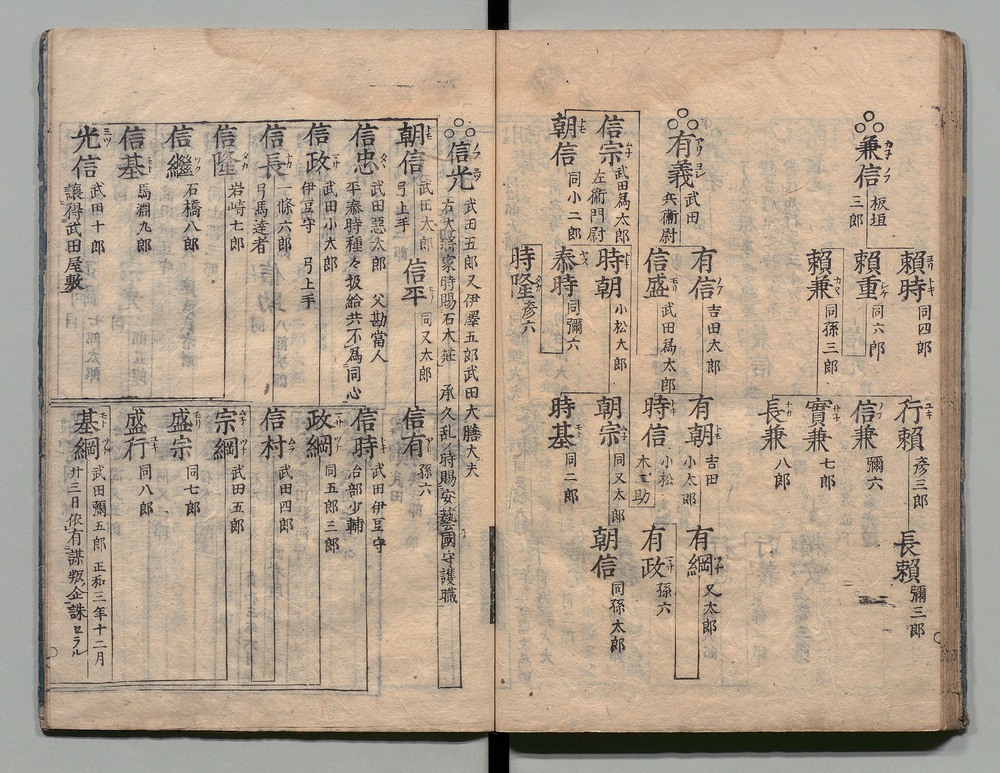 兼信 板垣三郎
頼時 同四郎
頼重 同六郎
頼兼 同孫三郎
行頼 彦三郎
信兼 彌六
實兼 七郎
長兼 八郎
長頼 彌三郎
有義 武田兵衞尉
有信 吉田太郎
信盛 武田爲太郎
有朝 吉田小太郎
時信 小松木工助
有綱 又太郎
有政 孫六
信宗 武田爲太郎左衞門尉
朝信 同小二郎
時朝 小松大郎
泰時 同彌六
時隆 彦六
朝宗 同又太郎
時基 同二郎
朝信 同孫太郎
信光 武田五郎又伊澤五郎武田大膳大夫
右大將家時賜石木莊 承久乱ノ時賜安藝國守護職
朝信 武田太郎 弓上手
信忠 武田惡太郎 父勘當人
平泰時種々扱給共不爲同心
信政 武田小太郎
伊豆守 弓上手
信長 一條六郎
弓馬達者
信隆 岩崎七郎
信繼 石橋八郎
信基 馬淵九郎
光信 武田十郎
讓得武田屋敷
信平 同又太郎
信有 孫六
信時 武田伊豆守
治部少輔
政綱 同五郎三郎
信村 武田四郎
宗綱 武田五郎
盛宗 同七郎
盛行 同八郎
基綱 武田彌五郎 正和三年十二月
廿三日依有謀叛企誅セラル